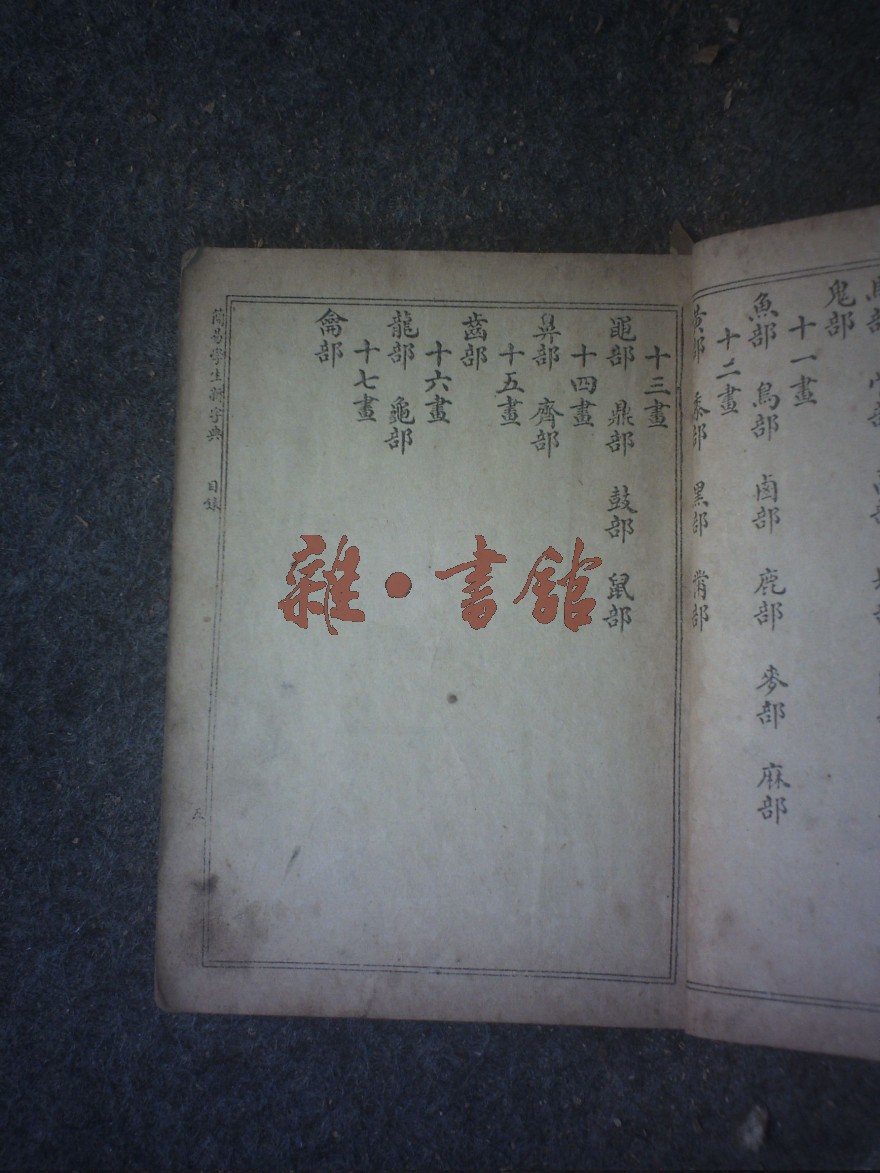 鬼部
十一畫
魚部 鳥部 鹵部 鹿部 麥部 麻部
十二畫
黃部 黍部 黑部 黹部
十三畫
黽部 鼎部 鼓部 鼠部
十四畫
鼻部 齊部
十五畫
齒部
十六畫
龍部 龜部
十七畫
龠部
簡易學生新字典 目錄
五
雜·書館